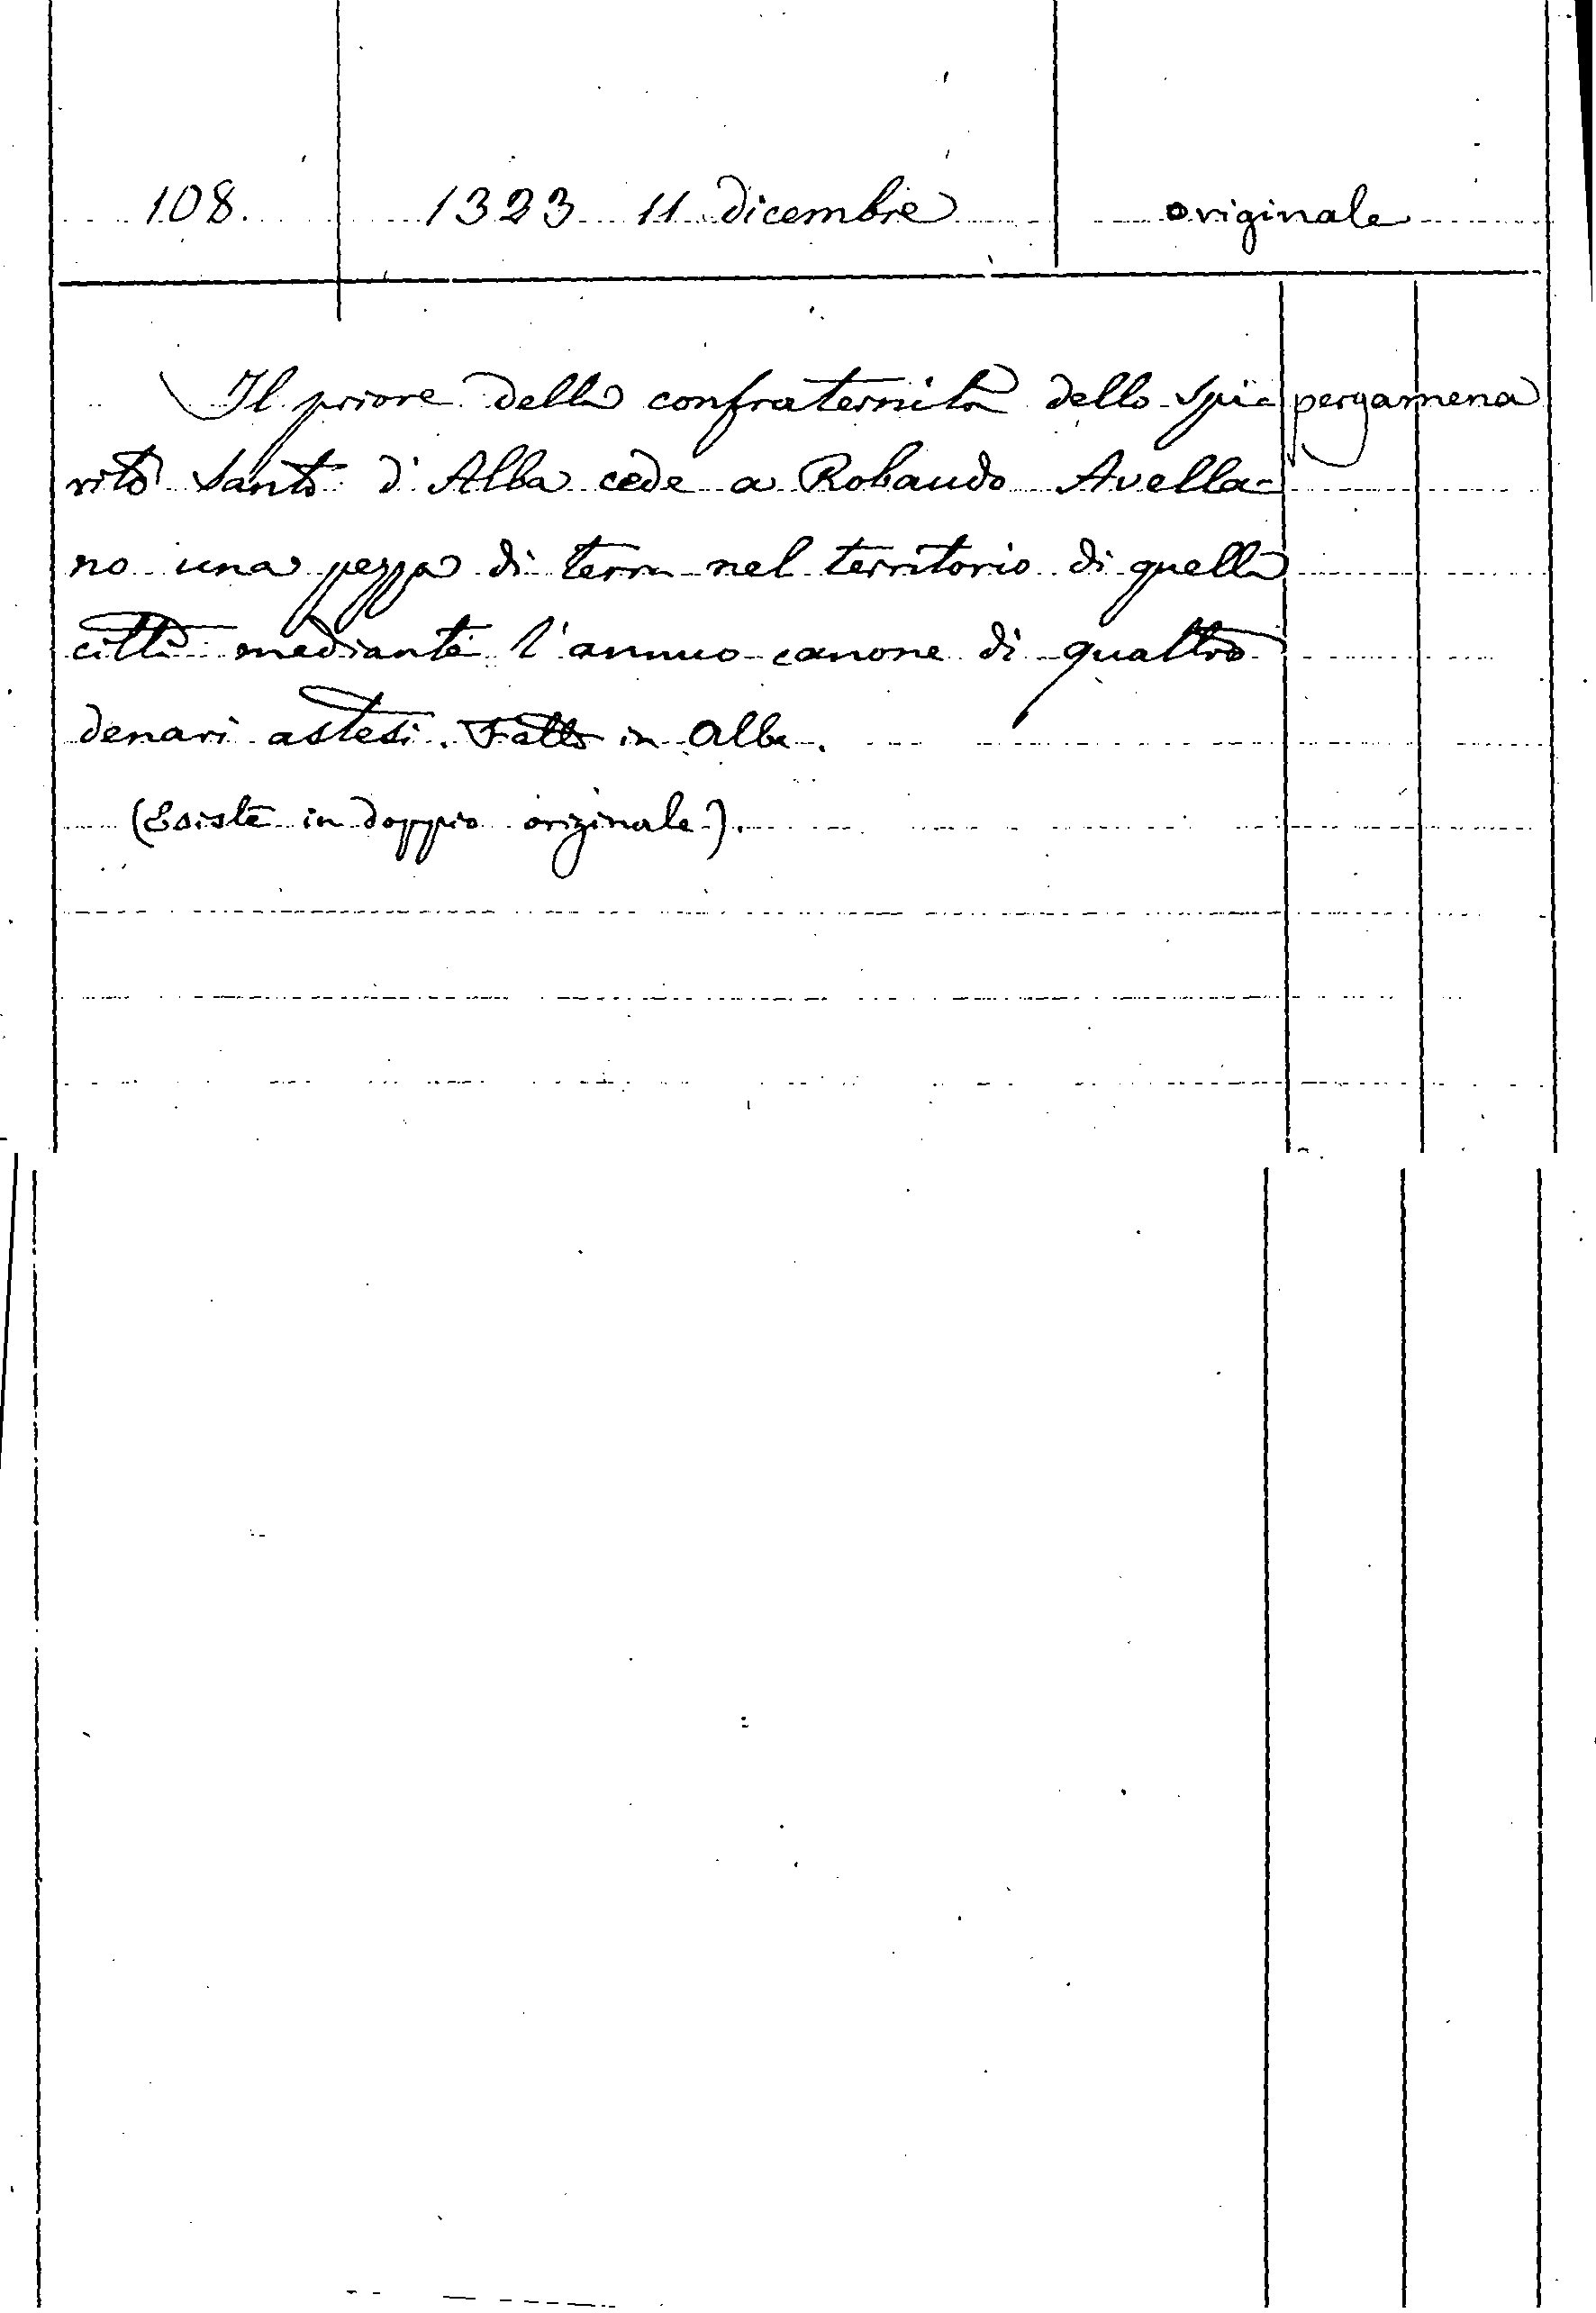 108. 1323 11 dicembre originale
Il priore della confraternita dello Spi- pergamena
rito Santo d'Alba cede a Robaudo Avella-
no una pezza di terra nel territorio di quella
città mediante l'annuo canone di quattro
denari astesi. Fatto in Alba.
(Esiste in doppio originale).